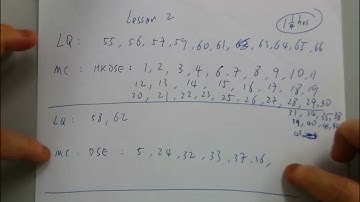 Lesson 2
1 1/4 hrs
LQ: 55, 56, 57, 59, 60, 61, 63, 64, 65, 66
MC: HKDSE: 1, 2, 3, 4, 6, 7, 8, 9, 10, 11
12, 13, 14, 15, 16, 17, 18, 19
20, 21, 22, 23, 25, 26, 27, 28, 29, 30
31, 34, 35, 38
39, 40
LQ: 58, 62
MC: DSE: 5, 24, 32, 33, 37, 36,